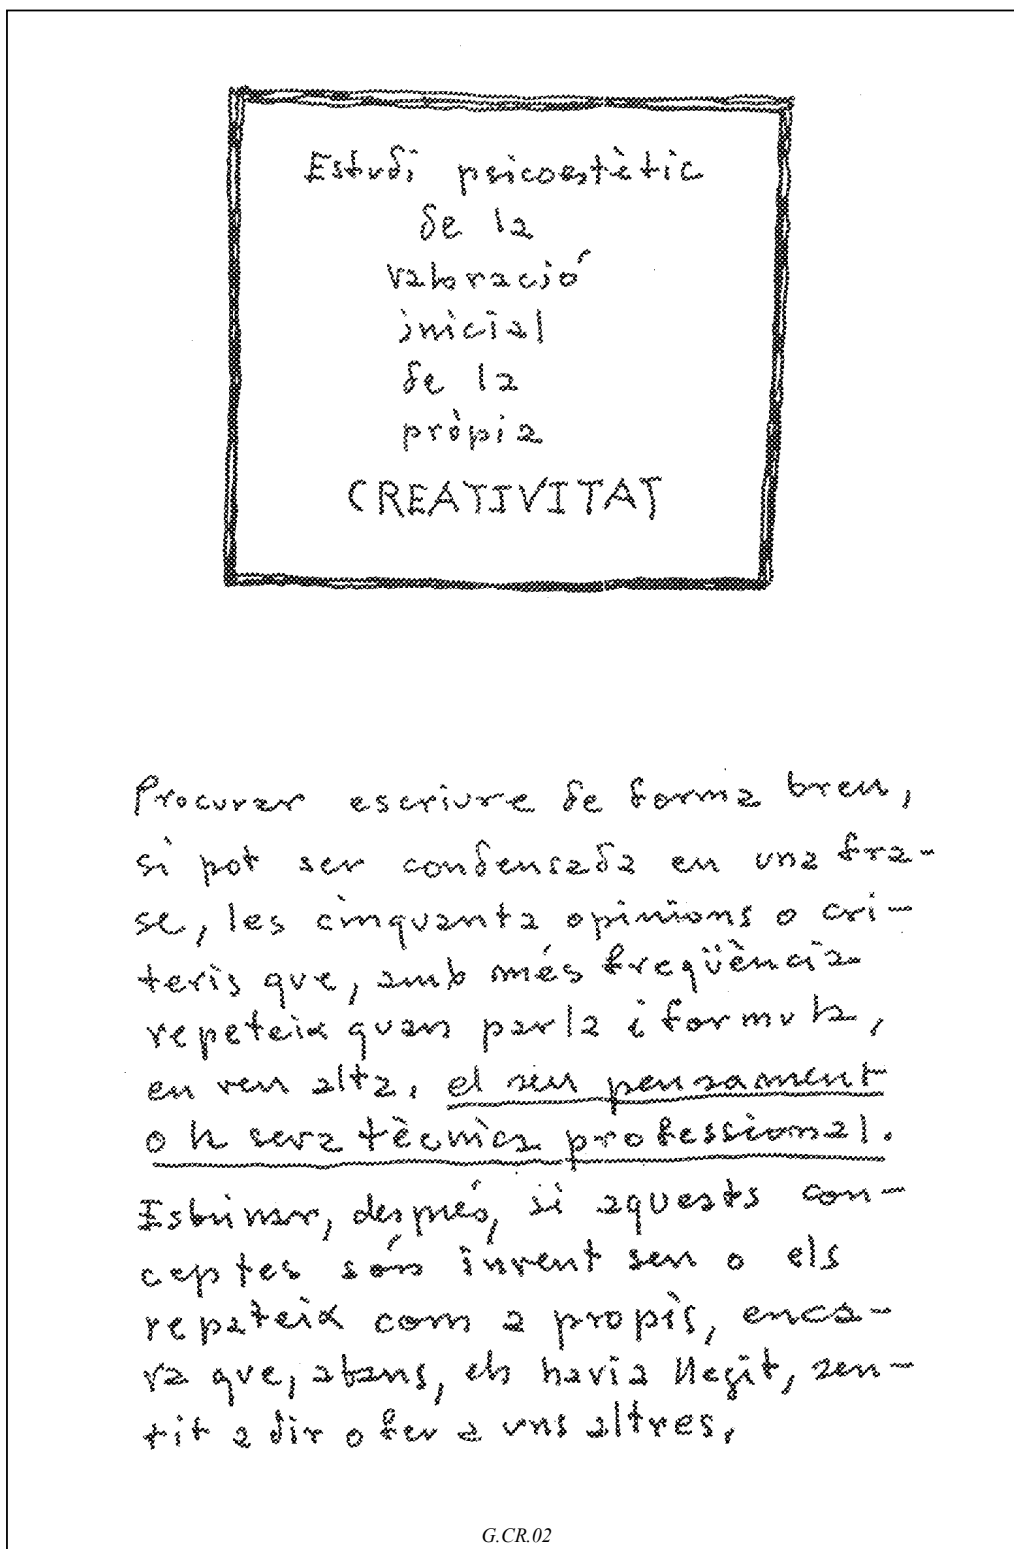 Estudi psicoestètic
de la
valoració
inicial
de la
pròpia
CREATIVITAT
Procurar escriure de forma breu,
si pot ser condensada en una fra-
se, les cinquanta opinions o cri-
teris que, amb més freqüència
repeteix quan parla i formula,
en veu alta, el seu pensament
o la seva tècnica professional.
Esbrinar, després, si aquests con-
ceptes són invent seu o els
repeteix com a propis, enca-
ra que, abans, els havia llegit, sen-
tit a dir o fer a uns altres.
G.CR.02